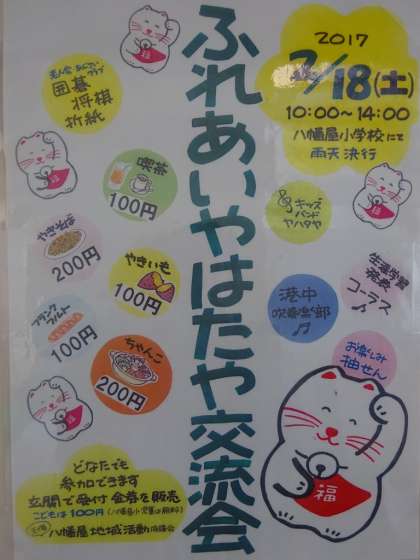 ふれあいやはたや交流会
2017
2/18(土)
10:00〜14:00
八幡屋小学校にて
雨天決行
囲碁
将棋
折紙
喫茶
100円
やきそば
200円
やきいも
100円
フランク
フルト
100円
ちゃんこ
200円
キッズ
バンド
ヤハタヤ
港中
吹奏楽部
生涯学習
コーラス
お楽しみ
抽せん
どなたでも
参加できます
玄関で受付 金券を販売
こどもは100円
八幡屋地域活動協議会
福
福
福
福
福